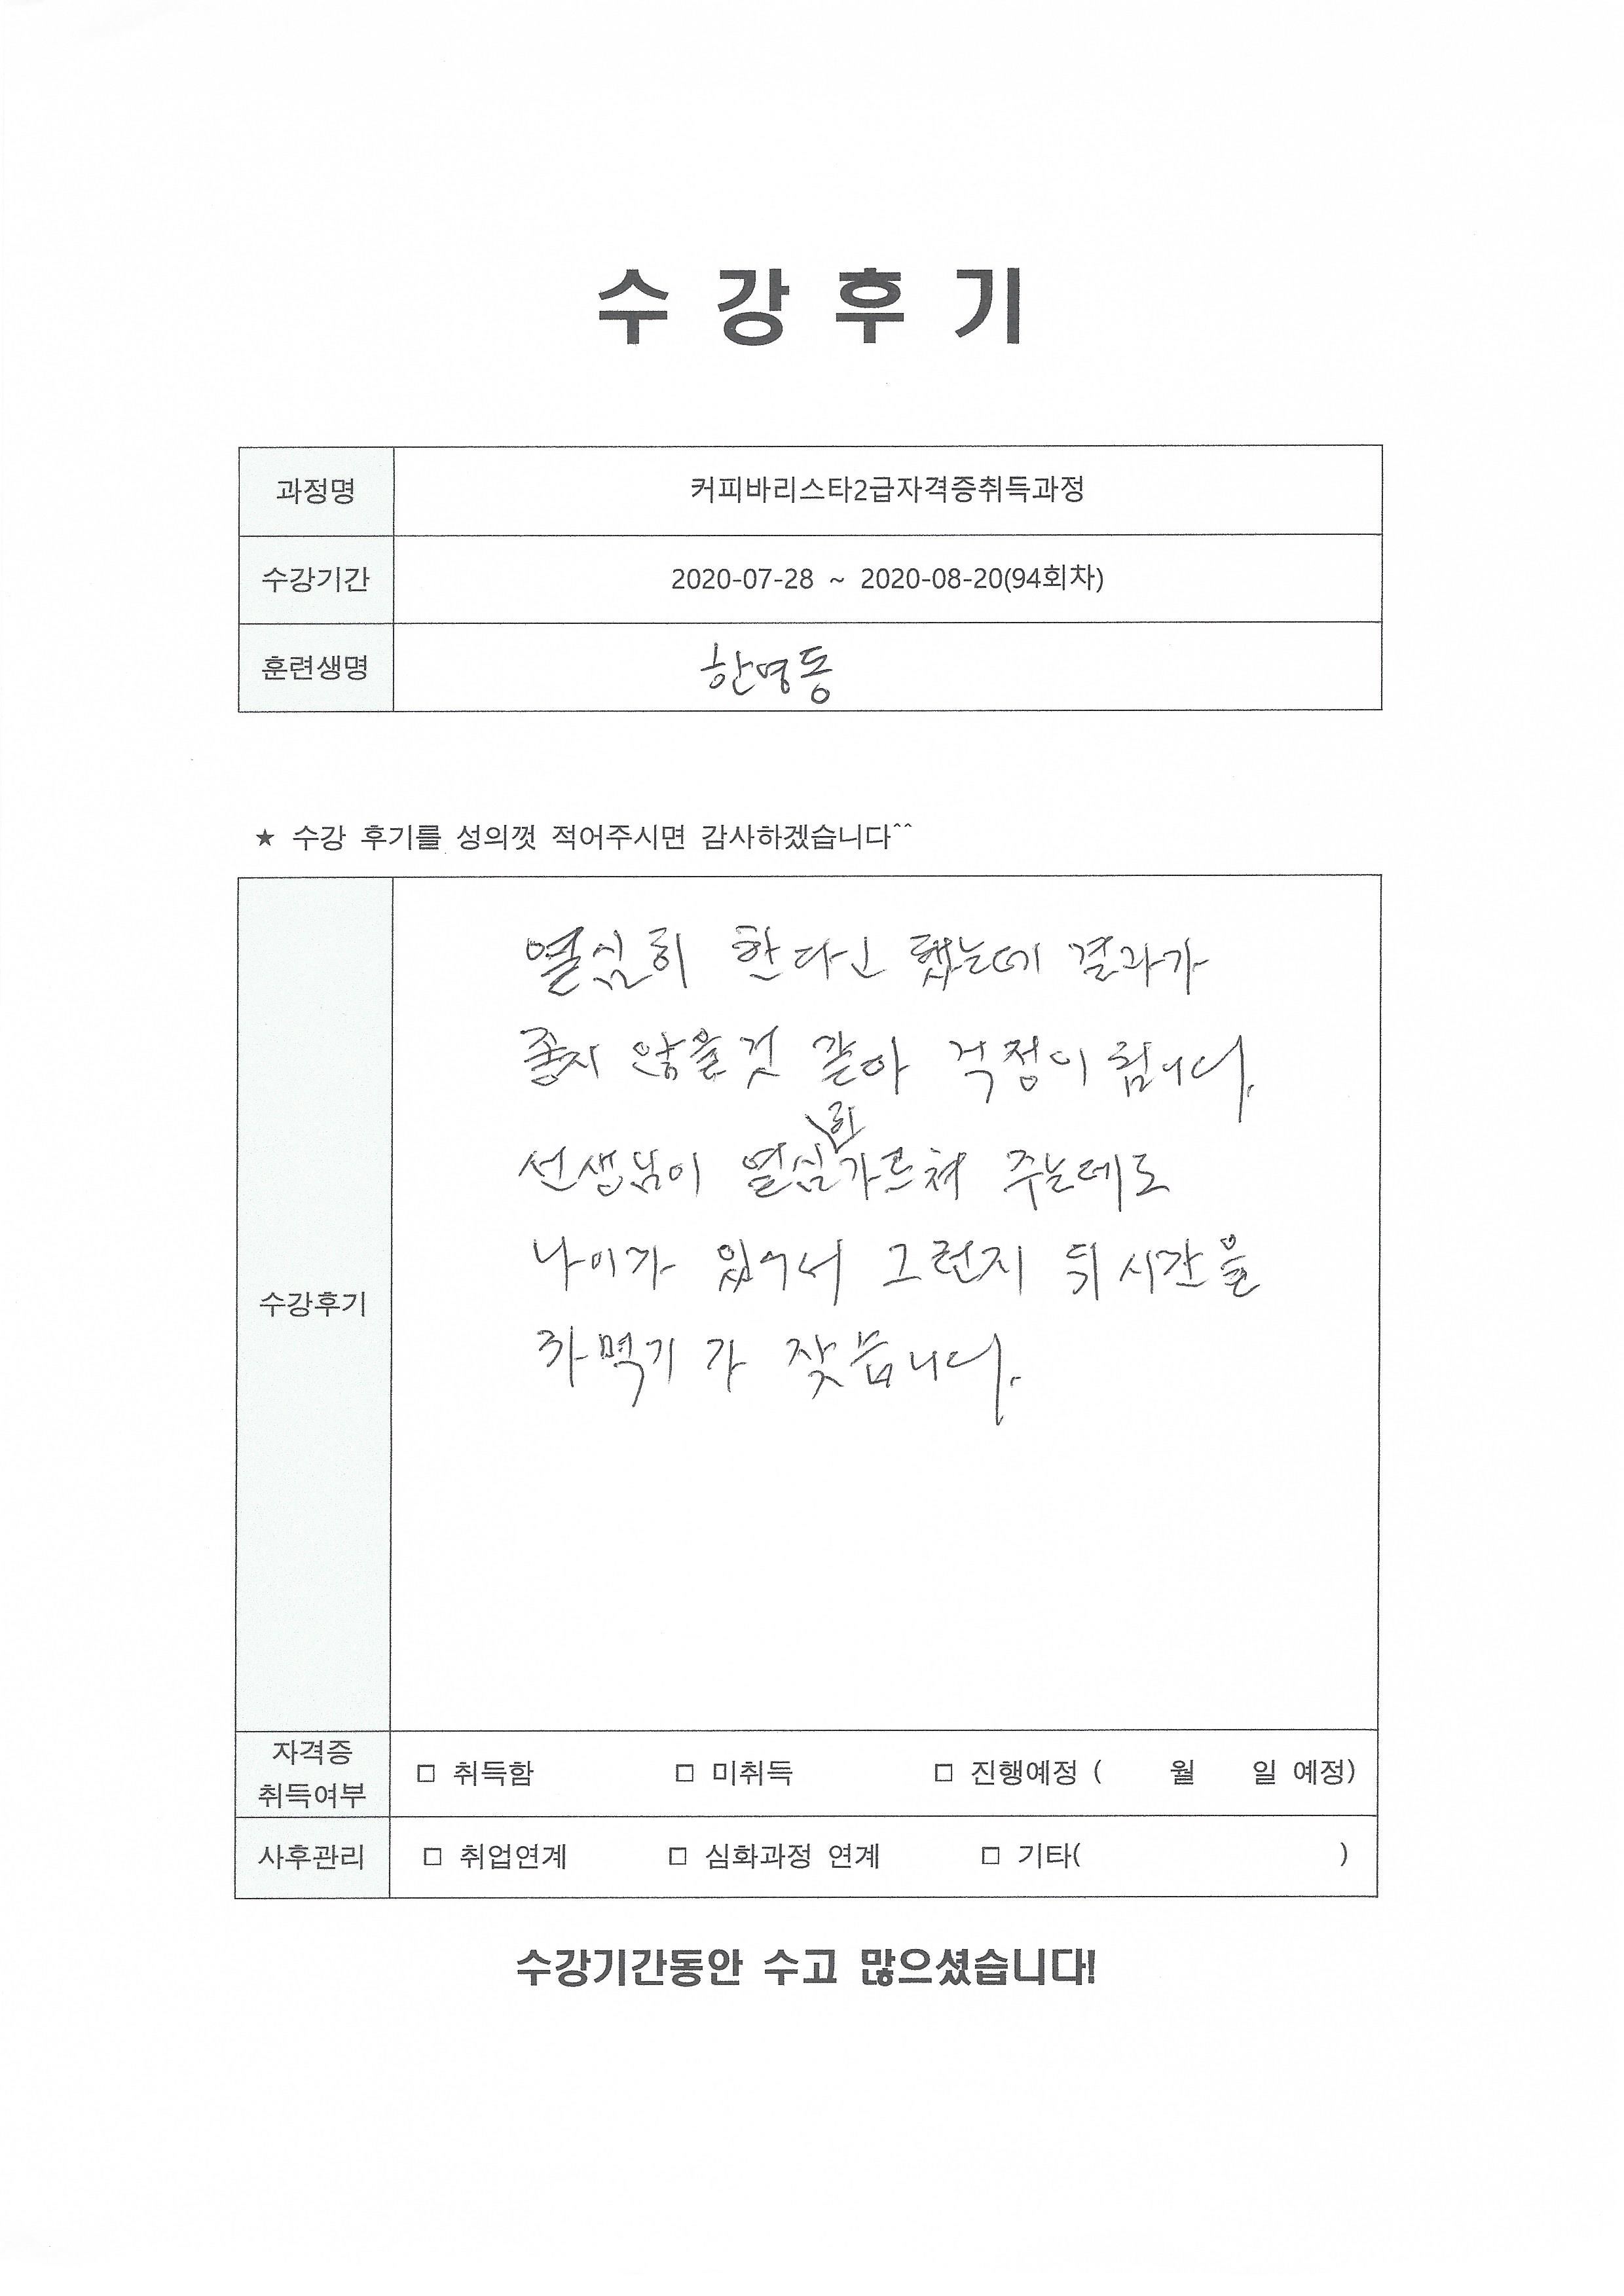 수 강 후 기
과정명 커피바리스타2급자격증취득과정
수강기간 2020-07-28 ~ 2020-08-20(94회차)
훈련생명 한명동
★ 수강 후기를 성의껏 적어주시면 감사하겠습니다^^
수강후기
열심히 한다고 했는데 결과가
좋지 않을것 같아 걱정이 됩니다.
선생님이 열심히 가르쳐 주는데도
나이가 있어서 그런지 뒤 시간을
까먹기 가 잦습니다.
자격증
취득여부 □ 취득함 □ 미취득 □ 진행예정 ( 월 일 예정)
사후관리 □ 취업연계 □ 심화과정 연계 □ 기타( )
수강기간동안 수고 많으셨습니다!